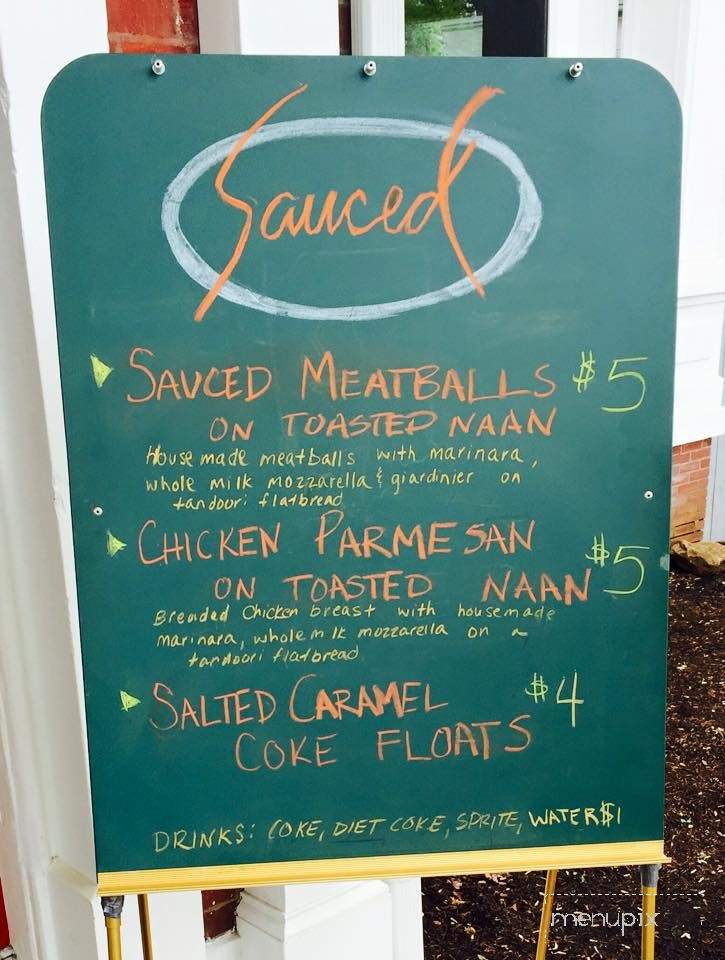 Sauced
SAUCED MEATBALLS $5
ON TOASTED NAAN
House made meatballs with marinara,
whole milk mozzarella & giardinier on
tandoori flatbread
CHICKEN PARMESAN $5
ON TOASTED NAAN
Breaded Chicken breast with housemade
marinara, whole milk mozzarella on a
tandoori flatbread
SALTED CARAMEL $4
COKE FLOATS
DRINKS: COKE, DIET COKE, SPRITE, WATER $1
menupix